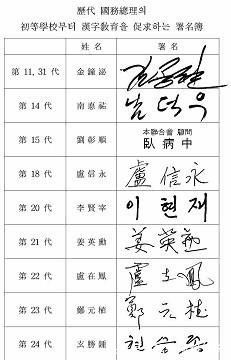 歷代 國務總理의
初等學校부터 漢字敎育을 促求하는 署名簿
姓名 署名
第 11, 31 代 金鐘泌 김종필
第 14 代 南悳祐 남덕우
第 15 代 劉彰順 本聯合會 顧問
臥病中
第 18 代 盧信永 盧信永
第 20 代 李賢宰 이현재
第 21 代 姜英勳 姜英勳
第 22 代 盧在鳳 盧在鳳
第 23 代 鄭元植 鄭元植
第 24 代 玄勝鍾 현승종